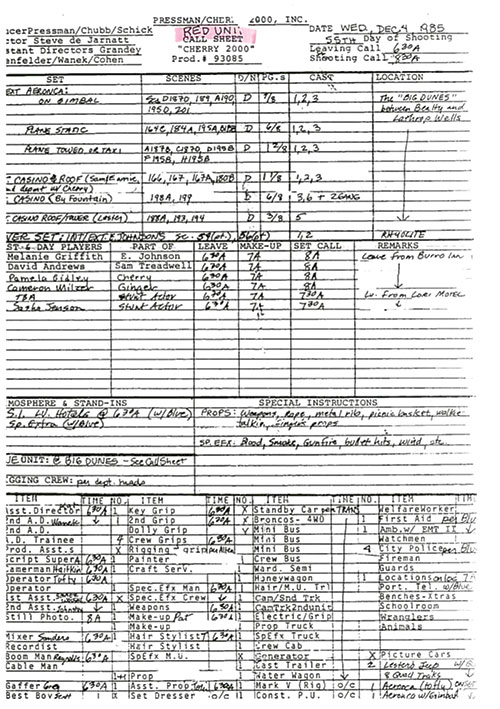 PRESSMAN/CHER. 2000, INC.
ucerPressman/Chubb/Schick RED UNIT DATE WED, DEC, 4 1985
ctor Steve de Jarnatt CALL SHEET 55TH Day of Shooting
istant Directors Grandey "CHERRY 2000" Leaving Call 630A
enfelder/Wanek/Cohen Prod.# 93085 Shooting Call 830A
SET SCENES D/N PG.s CAST LOCATION
EXT AERONCA:
ON GIMBAL D 7/8 1,2,3 The "BIG DUNES"
195D, 201 between Beatty and
PLANE STATIC 164C, 184A, D 6/8 1,2,3 Lathrop Wells
PLANE TOWED OR TAXI D 1 2/8 1,2,3
CASINO ROOF 166, 167, 167A, D 1 1/8 1,2,3
CASINO (By Fountain) 198A, 199 6/8 3,6 + 2GANG
CASINO ROOF/TOWER (Lester) 188A, 193, 194 D 3/8 5
VER SET: INT/EXT E. JOHNSONS 1,2 RHYOLITE
ST-&-DAY PLAYERS PART OF LEAVE MAKE-UP SET CALL REMARKS
Melanie Griffith E. Johnson 630A 7A 8A Leave from Burro Inn
David Andrews Sam Treadwell 630A 7A 8A
Pamela Gidley Cherry 630A 7A 8A
Cameron Milzer Ginger 630A 7A 8A
TBA Stunt Actor 630A 7A 730A Lv. From LORI MOTEL
Sasha Jenson Stunt Actor 630A 7A 730A
MOSPHERE & STAND-INS SPECIAL INSTRUCTIONS
S.I. LV. Hotels @ 630A (w/Blue) PROPS: Weapons, rope, metal rib, picnic basket, walkie
Sp. Extra (w/Blue) talkie, Ginger's props
SP.EFX: Blood, Smoke, Gunfire, bullet hits, wind, etc.
UE UNIT: @ BIG DUNES - See Call Sheet
GGING CREW: per dept. heads
ITEM TIME NO. ITEM TIME NO. ITEM TIME NO. ITEM TIME
sst.Director 630A 1 Key Grip 630A X Standby Car WelfareWorker
nd A.D. Wanek 1 2nd Grip 620A X Broncos- 4WD 1 First Aid per Blu
2nd A.D. Dolly Grip Mini Bus 1 Amb.w/ EMT II
.A. Trainee 4 Crew Grips 630A Mini Bus Watchmen
rod. Asst.s X Rigging grip Mini Bus 4 City Police per Blu
cript Super 630A 1 Painter Crew Bus Fireman
amerman 630A 1 Craft Serv. Ward. Semi Guards
perator Tofty 630A Honeywagon 1 Locations
perator 1 Spec.Efx Man 630A Hair/M.U. Trl Port. Tel. w/Blue
1st Asst. 630A X Spec.Efx Crew Cam/Snd Trk Benches-Xtras
2nd Asst. 1 Weapons 630A CamTrk2ndunit Schoolroom
Still Photo. 8A 1 Make-up Pat 630A Electric/Grip Wranglers
Make-up Prop Truck Animals
Mixer Sanders 630A 1 Hair Stylist 630A SpEfx Truck
Recordist Hair Stylist Crew Cab
Boom Man 630A SpEfx M.U. X Generator X Picture Cars
Cable Man Cast Trailer 2 Lester's Jeep
1+ Prop Water Wagon 8 Quad Traks
Gaffer Greg 630A 1 Asst. Prop 630A Mark V (Rig) o/c 1 Aeronca (Tofty)
Best Boy X Set Dresser o/c Const. P.U. o/c 1 Aeronca w/Gimbal